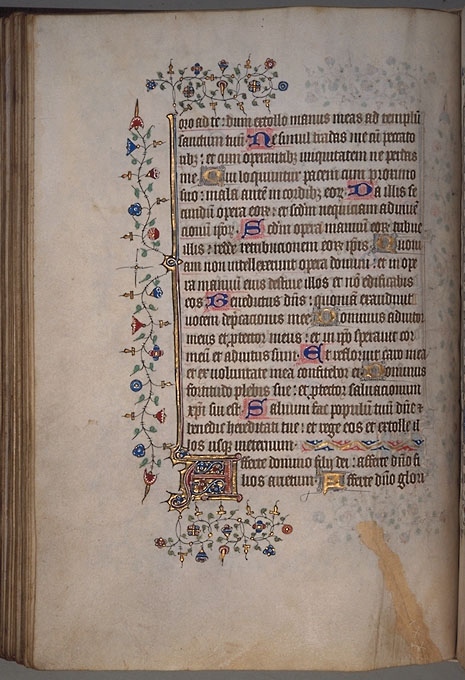 oro ad te: dum extollo manus meas ad templū
sanctum tuū Ne simul tradas me cū peccato
ribz: et cum operantibz iniquitatem ne perdas
me Qui loquuntur pacem cum proximo
suo: mala autē in cordibz eorz Da illis se
cundū opera eorz: et scdm nequiciam adinuē
cionū ipsorz Scdm opera manuū eorz tribue
illis: redde retribucionem eorz ipsis Quoni
am non intellexerunt opera domini: et in ope
ra manuū eius destrue illos et nō edificabis
eos Benedictus dūs: quoniā exaudiuit
vocem depcacionis mee Dominus adiutor
meus et ptector meus: et in ipo sperauit cor
meū et adiutus sum Et refloruit caro mea
et ex voluntate mea confitebor ei Dominus
fortitudo plebis sue: et ptector saluacionum
xpi sui est Saluum fac populū tuū dūe ⁊
benedic hereditati tue: et rege eos et extolle il
los usqz ineternum
Afferte domino filij dei: afferte dūo fi
lios arietum Afferte dūo glori